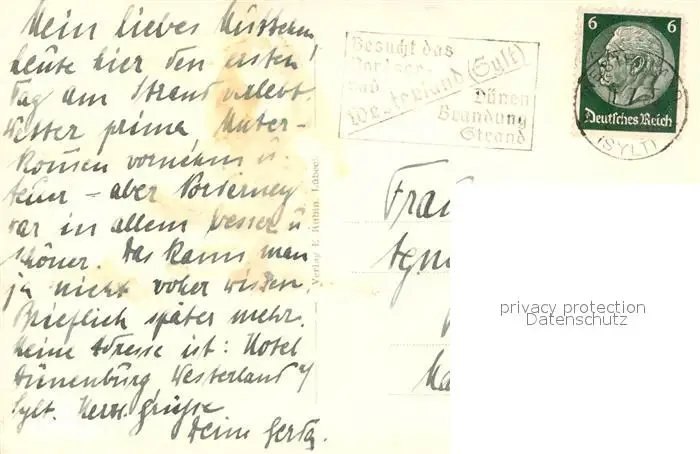 Mein liebes Mütterlein!
heute hier den ersten
Tag am Strand verlebt.
Wetter prima Unter-
kommen vornehm u.
teuer – aber Norderney
war in allem besser u
schöner. Das kann man
ja nicht voher wissen.
Brieflich später mehr.
Meine Adresse ist: Hotel
Dünenburg, Westerland /
Sylt. Herzl. Grüsse
Deine Gerda.
Verlag E. Rubin, Lübeck
Besucht das
Nordsee-
bad
Westerland (Sylt)
Dünen
Brandung
Strand
6 6
Deutsches Reich
(SYLT)
Frau
Agn
privacy protection
Datenschutz